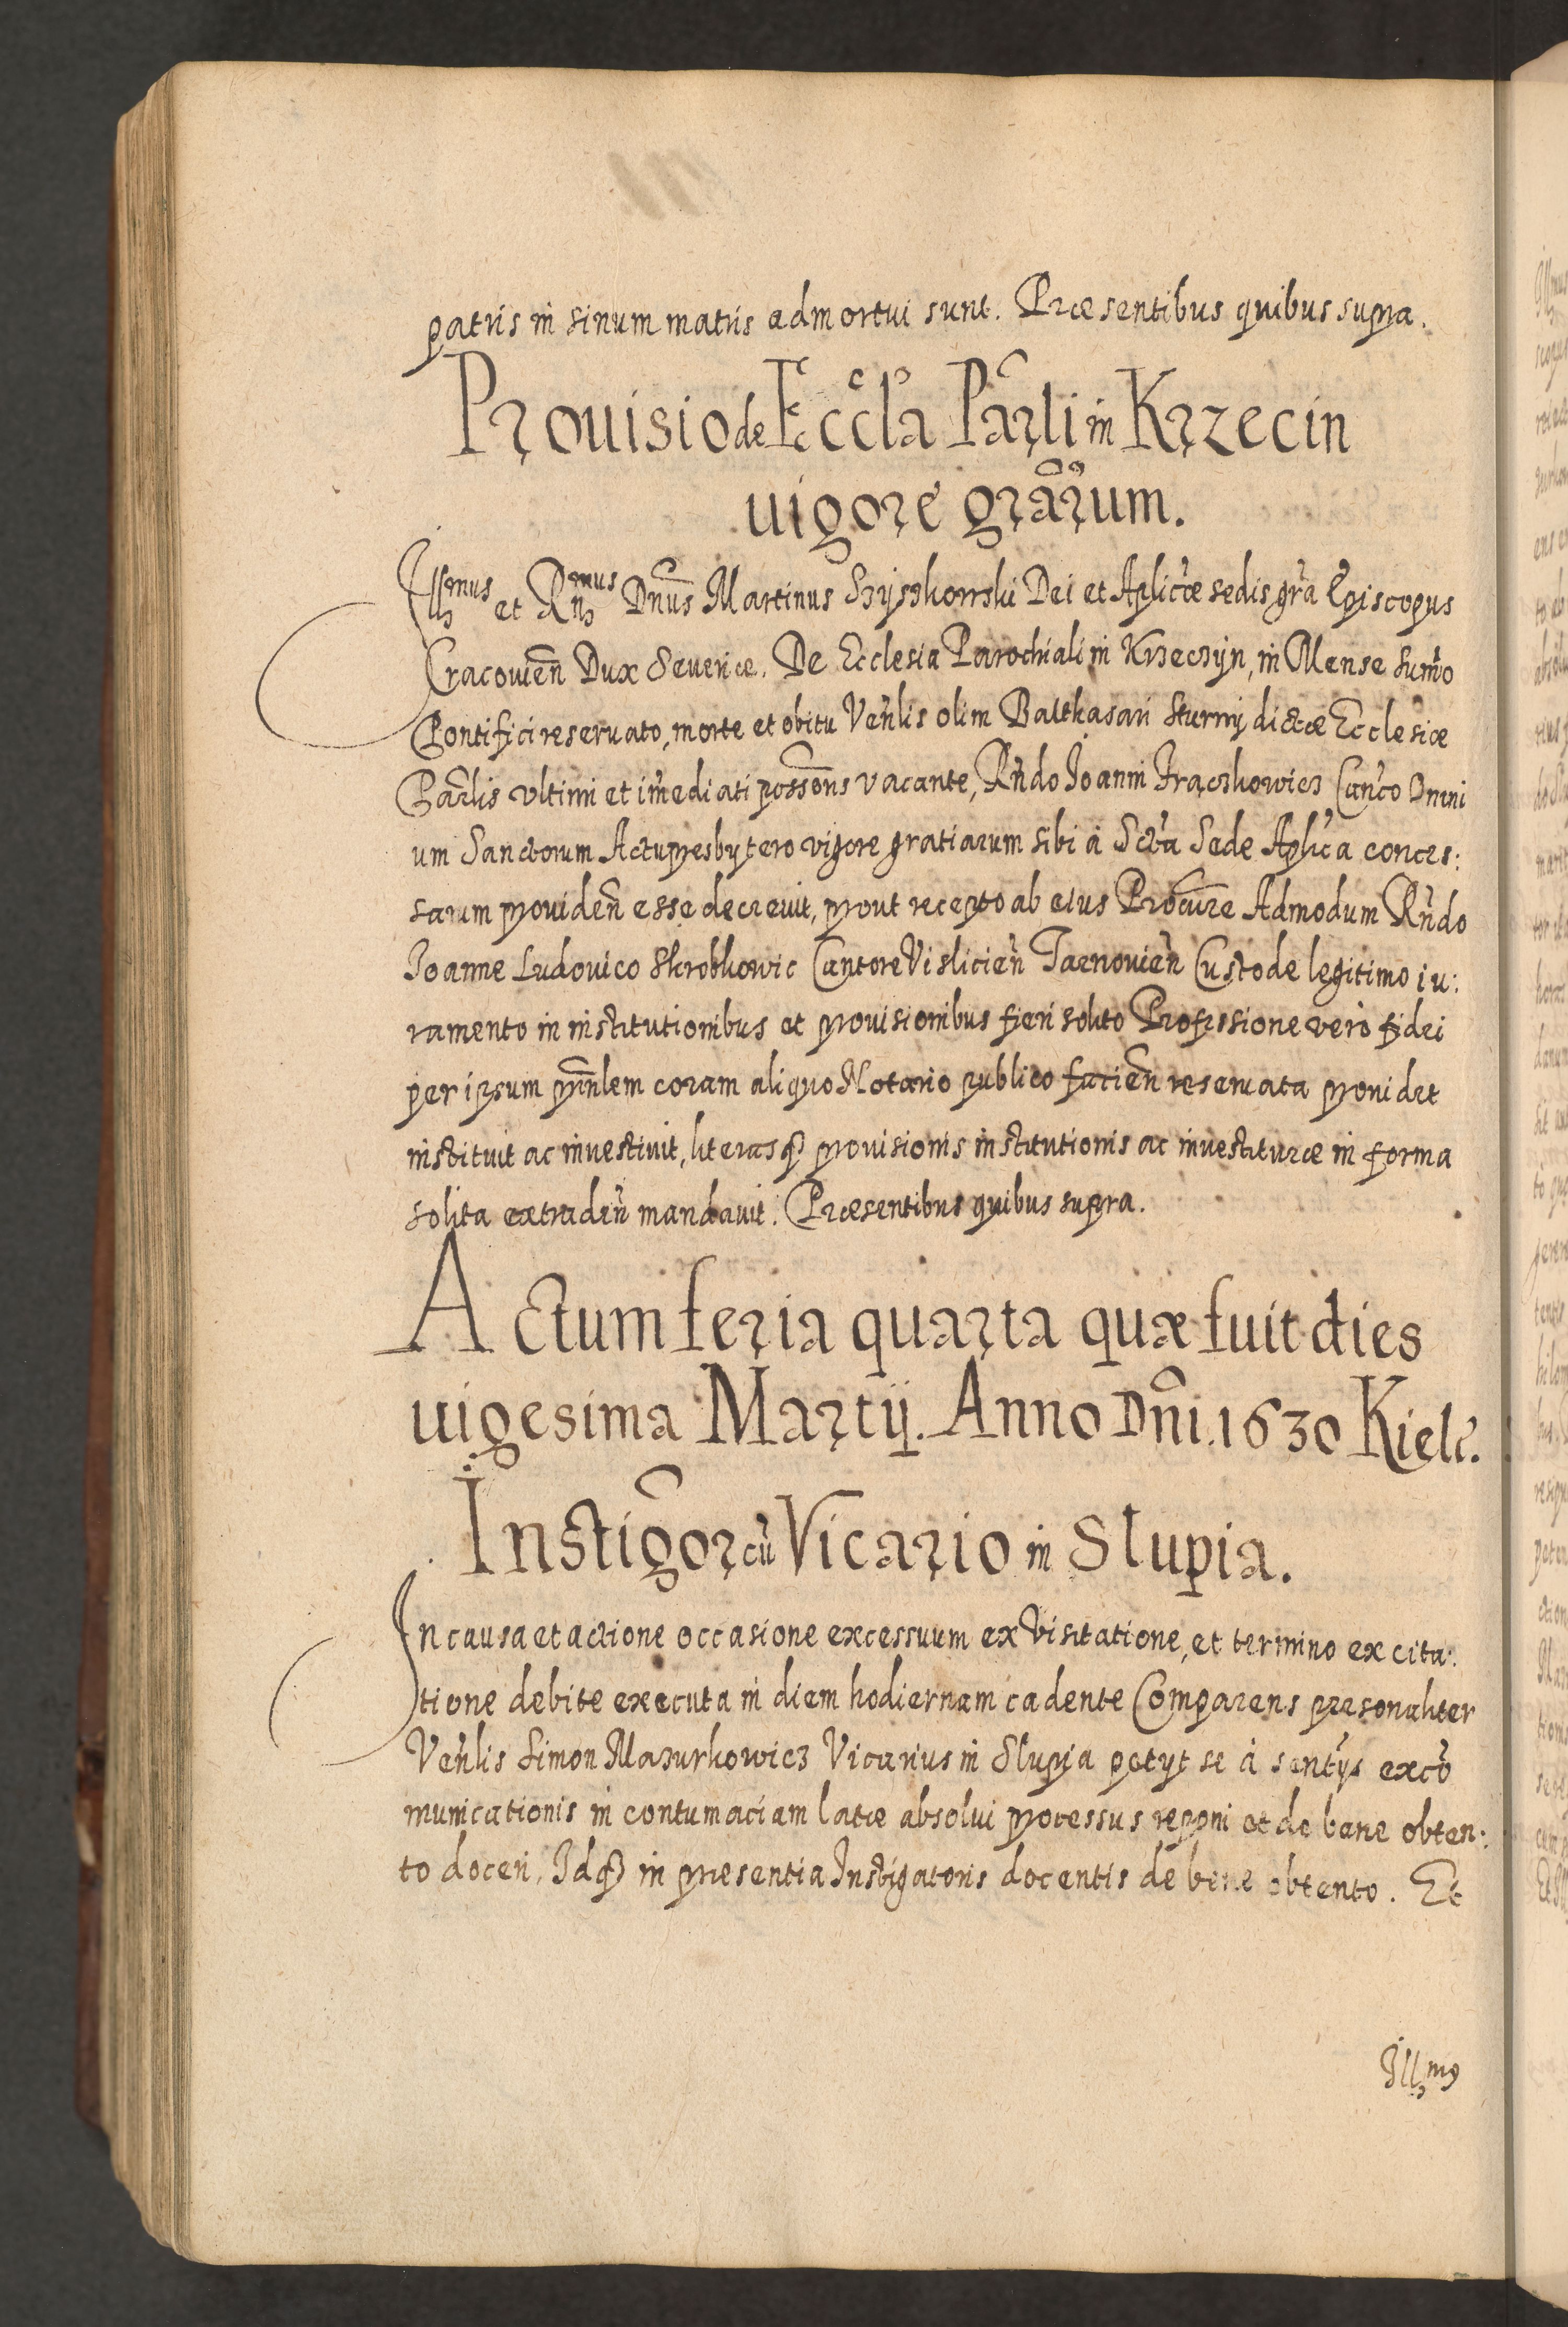 patris in sinum matris admortui sunt. Præsentibus quibus supra.
Prouisio de Eccl̃a Par̃li in Krzecin
uigore gr̃arum.
Illmus et Rn̄mus Dñus Martinus Szyszkowski Dei et Aplicæ sedis gr̃a Episcopus
Cracovien̄ Dux Severiæ. De Ecclesia Parochiali in Krzeczyn, in Mense Sum̃o
Pontifici reseruato, morte et obitu Ven̄lis olim Balthasari Sturmij dictæ Ecclesiæ
Par̃lis vltimi et im̃ediati possons̃ vacante, Rn̄do Joanni Frączkowicz Can̄co Omni
um Sanctorum Actupresbytero vigore gratiarum sibi à Sctã Sede Aplicã conces:
sarum providen̄ esse decrevit, prout recepto ab eius Procũre Admodum Rn̄do
Joanne Ludovico Skrobkowic Cantore Vislicien̄ Tarnovien̄ Custode legitimo iu:
ramento in institutionibus et provisionibus fieri solito Professione verò fidei
per ipsum prin̄lem coram aliquo Notario publico facien̄ reservata providet
instituit ac investivit, literasq3 provisionis institutionis ac investituræ in forma
solita extraden̄ mandavit. Præsentibus quibus supra.
Actum feria quarta quæ fuit dies
uigesima Martij. Anno Dñi. 1630 Kielc̃.
Instigor̃ cũ Vicario in Slupia.
In causa et actione occasione excessuum ex Visitatione, et termino ex cita:
tione debite executa in diem hodiernam cadente Comparens personaliter
Ven̄lis Simon Mazurkowicz Vicarius in Slupia petyt se à sentỹs excõ
municationis in contumaciam latæ absolvi processus reponi et de bene obten:
to doceri. Idq3 in præsentia Instigatoris docentis de bene obtento. Et
Illm9